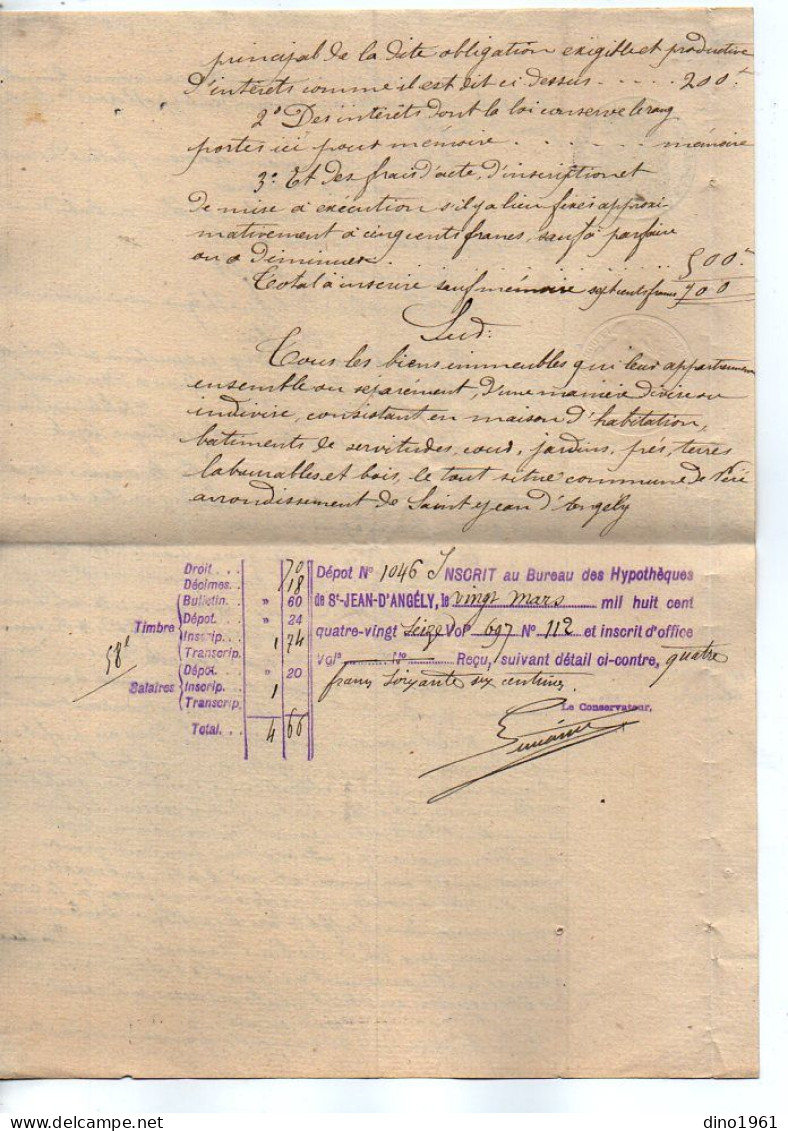 principal de la dite obligation exigible et productive
d'intérêts comme il est dit ci dessus - . . . . 200f
2° Des intérêts dont la loi conserve le rang
portés ici pour mémoire . . . . . mémoire
3° Et des frais d'acte, d'inscription et
de mise à exécution s'il y a lieu fixés approxi
mativement à cinq cents francs, sauf à parfaire
ou à diminuer . . . . . . . . . . 500f
Total à inscrire sauf mémoire sept cents francs 700
Sud:
Tous les biens immeubles qui leur appartiennent
ensemble ou séparément, d'une manière divise ou
indivise, consistant en maison d'habitation,
bâtiments de servitudes, cour, jardins, prés, terres
labourables, et bois, le tout situé commune de Véré
arrondissement de Saint Jean d'Angély
Droit . . . 70
Décimes. . 18
Timbre
Bulletin. . » 60
Dépot. . » 24
Inscrip. . 1 74
Transcrip.
Salaires
Dépôt. . » 20
Inscrip. . 1
Transcrip.
Total. . . 4 66
58f
Dépot N° 1046 INSCRIT au Bureau des Hypothèques
de St-JEAN-D'ANGÉLY, le vingt mars mil huit cent
quatre-vingt seize Vol° 697 N° 112 et inscrit d'office
vol° N° Reçu, suivant détail ci-contre, quatre
francs soixante six centimes
Le Conservateur,
dino1961